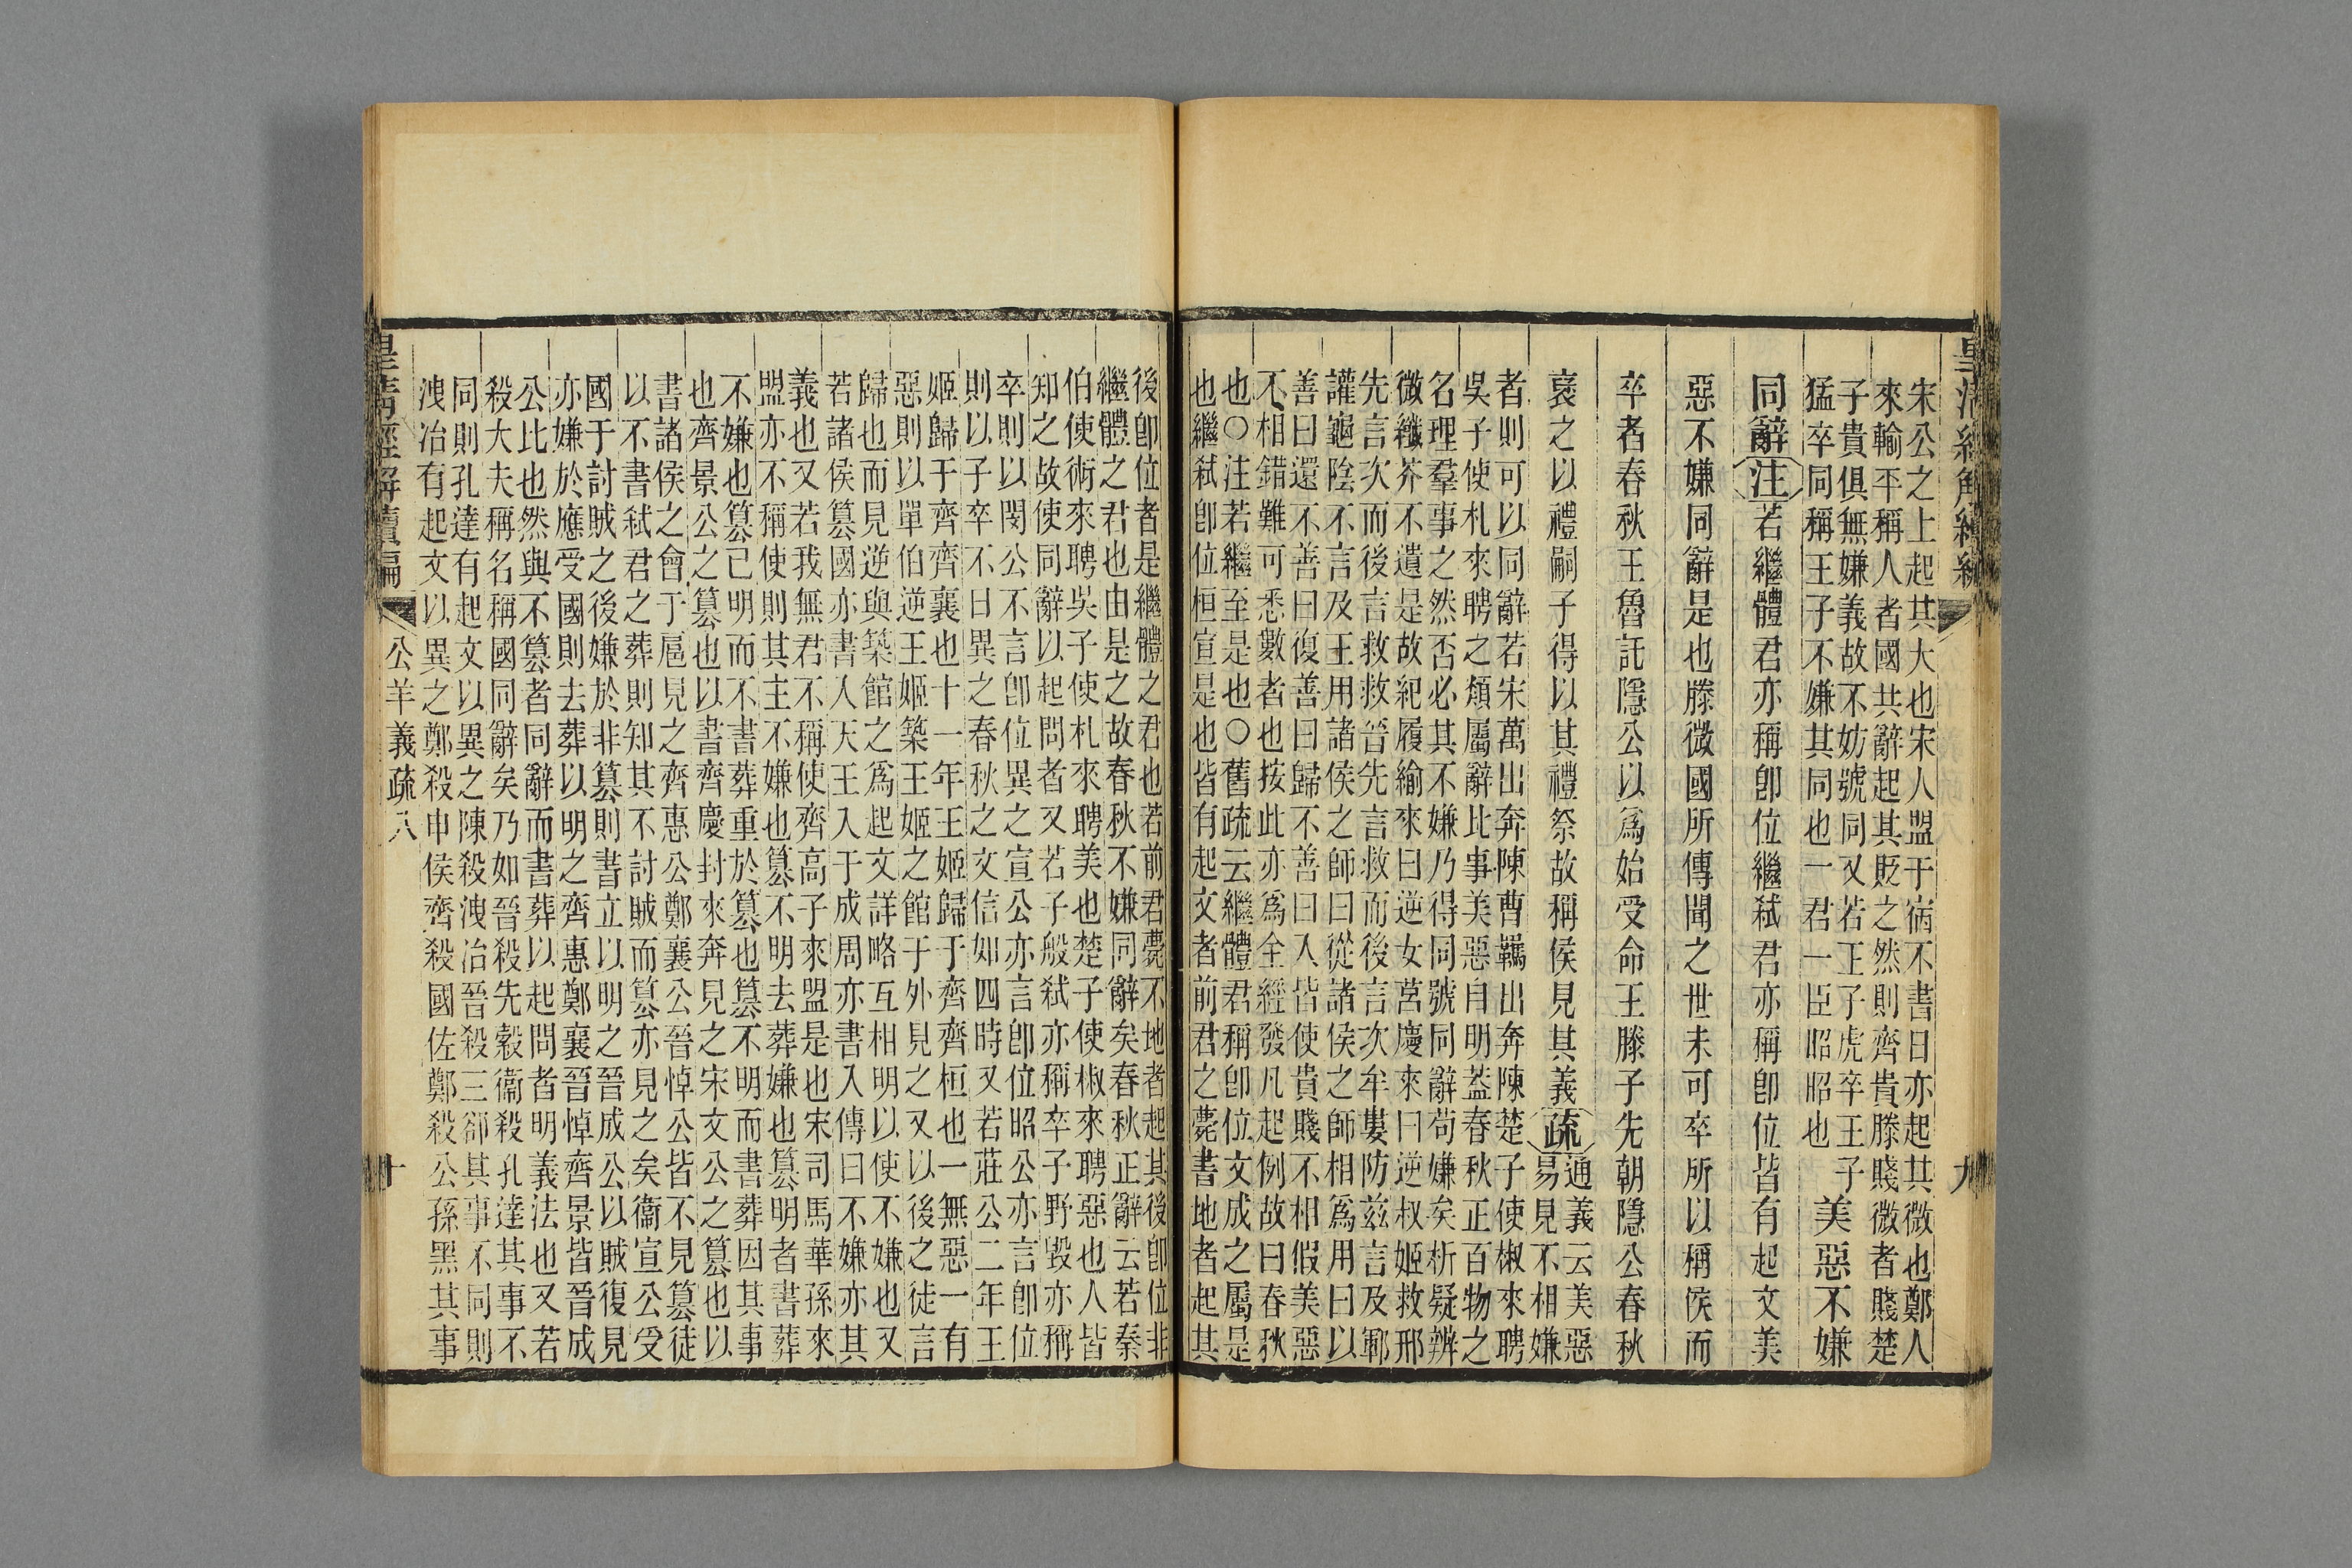 皇清經解續編
九
宋公之上起其大也宋人盟于宿不書日亦起其微也鄭人
來輸平稱人者國共辭起其貶之然則齊貴滕賤微者賤楚
子貴俱無嫌義故不妨號同又若王子虎卒王子
猛卒同稱王子不嫌其同也一君一臣昭昭也
美惡不嫌
同辭注若繼體君亦稱卽位繼弒君亦稱卽位皆有起文美
惡不嫌同辭是也滕微國所傳聞之世未可卒所以稱侯而
卒者春秋王魯託隱公以爲始受命王滕子先朝隱公春秋
褒之以禮嗣子得以其禮祭故稱侯見其義疏
通義云美惡
易見不相嫌
者則可以同辭若宋萬出奔陳曹羈出奔陳楚子使椒來聘
吳子使札來聘之類屬辭比事美惡自明蓋春秋正百物之
名理羣事之然否必其不嫌乃得同號同辭苟嫌矣析疑辨
微纖芥不遺是故紀履緰來曰逆女莒慶來曰逆叔姬救邢
先言次而後言救救晉先言救而後言次牟婁防茲言及鄆
讙龜陰不言及王用諸侯之師曰從諸侯之師相爲用曰以
善曰還不善曰復善曰歸不善曰入皆使貴賤不相假美惡
不相錯難可悉數者也按此亦爲全經發凡起例故曰春秋
也○注若繼至是也○舊疏云繼體君稱卽位文成之屬是
也繼弒卽位桓宣是也皆有起文者前君之薨書地者起其
後卽位者是繼體之君也若前君薨不地者起其後卽位非
繼體之君也由是之故春秋不嫌同辭矣春秋正辭云若秦
伯使術來聘吳子使札來聘美也楚子使椒來聘惡也人皆
知之故使同辭以起問者又若子般弒亦稱卒子野毀亦稱
卒則以閔公不言卽位異之宣公亦言卽位昭公亦言卽位
則以子卒不日異之春秋之文信如四時又若莊公二年王
姬歸于齊齊襄也十一年王姬歸于齊齊桓也一無惡一有
惡則以單伯逆王姬築王姬之館于外見之又以後之徒言
歸也而見逆與築館之爲起文詳略互相明以使不嫌也又
若諸侯篡國亦書入天王入于成周亦書入傳曰不嫌亦其
義也又若我無君不稱使齊高子來盟是也宋司馬華孫來
盟亦不稱使則其主不嫌也篡不明去葬嫌也篡明者書葬
不嫌也篡己明而不書葬重於篡也篡不明而書葬因其事
也齊景公之篡也以書齊慶封來奔見之宋文公之篡也以
書諸侯之會于扈見之齊惠公鄭襄公晉悼公皆不見篡徒
以不書弒君之葬則知其不討賊而篡亦見之矣衞宣公受
國于討賊之後嫌於非篡則書立以明之晉成公以賊復見
亦嫌於應受國則去葬以明之齊惠鄭襄晉悼齊景皆晉成
公比也然與不篡者同辭而書葬以起問者明義法也又若
殺大夫稱名稱國同辭矣乃如晉殺先縠衞殺孔達其事不
同則孔達有起文以異之陳殺洩冶晉殺三郤其事不同則
洩冶有起文以異之鄭殺申侯齊殺國佐鄭殺公孫黑其事
皇清經解續編
公羊義疏八
十